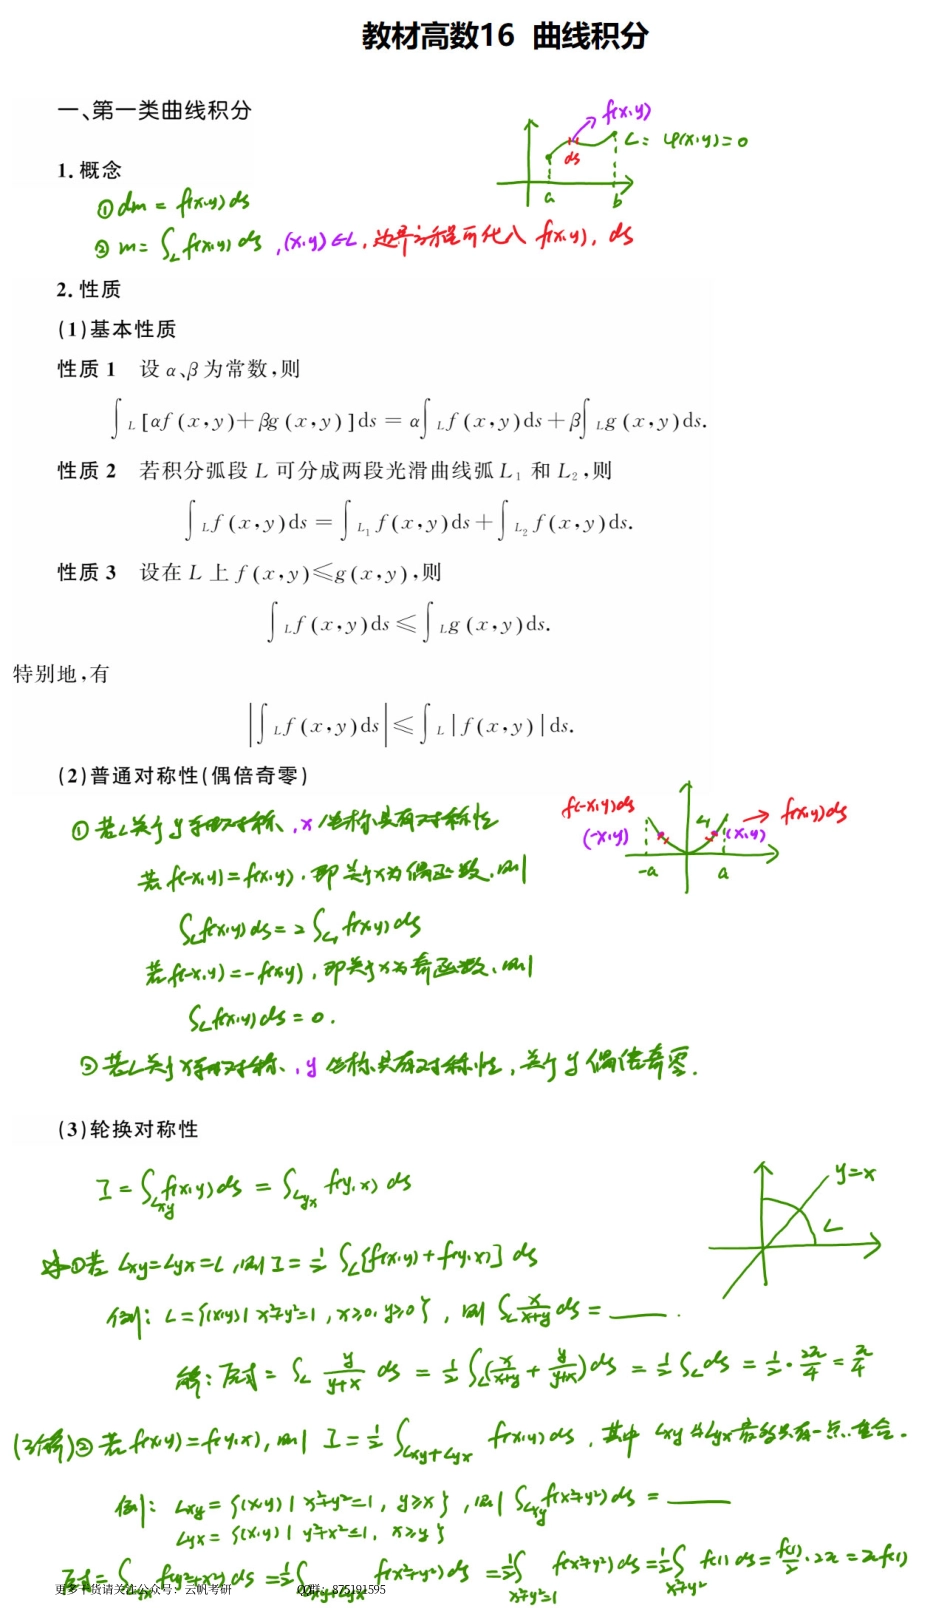 教材高数16 曲线积分
一、第一类曲线积分
f(x,y)
L: φ(x,y)=0
ds
a b
1. 概念
① dm = f(x,y) ds
② m = ∫_L f(x,y) ds, (x,y)∈L, 边界方程可代入 f(x,y), ds
2. 性质
(1)基本性质
性质 1 设 α、β 为常数,则
∫_L [αf(x,y)+βg(x,y)]ds = α∫_L f(x,y)ds + β∫_L g(x,y)ds.
性质 2 若积分弧段 L 可分成两段光滑曲线弧 L₁ 和 L₂,则
∫_L f(x,y)ds = ∫_{L₁} f(x,y)ds + ∫_{L₂} f(x,y)ds.
性质 3 设在 L 上 f(x,y)≤g(x,y),则
∫_L f(x,y)ds ≤ ∫_L g(x,y)ds.
特别地,有
|∫_L f(x,y)ds| ≤ ∫_L |f(x,y)|ds.
(2)普通对称性(偶倍奇零)
f(-x,y)ds L₁ → f(x,y)ds
(-x,y) (x,y)
-a a
① 若L关于y轴对称, x坐标具有对称性
若f(-x,y)=f(x,y), 即关于x为偶函数, 则
∫_L f(x,y) ds = 2 ∫_{L₁} f(x,y) ds
若f(-x,y)=-f(x,y), 即关于x为奇函数, 则
∫_L f(x,y) ds = 0.
② 若L关于x轴对称, y坐标具有对称性, 关于y偶倍奇零.
(3)轮换对称性
y=x
L
I = ∫_{Lxy} f(x,y) ds = ∫_{Lyx} f(y,x) ds
① 若 Lxy=Lyx=L, 则 I = 1/2 ∫_L [f(x,y)+f(y,x)] ds
例: L={(x,y)| x²+y²=1, x≥0, y≥0}, 则 ∫_L x/(x+y) ds = ____.
解: 原式 = ∫_L y/(y+x) ds = 1/2 ∫_L (x/(x+y) + y/(y+x)) ds = 1/2 ∫_L ds = 1/2 · 2π/4 = π/4
(了解)② 若 f(x,y)=f(y,x), 则 I = 1/2 ∫_{Lxy+Lyx} f(x,y) ds, 其中 Lxy 与 Lyx 最多只有一点重合.
例: Lxy = {(x,y) | x²+y²=1, y≥x}, 则 ∫_{Lxy} f(x²+y²) ds = ____
Lyx = {(x,y) | y²+x²=1, x≥y}
原式 = ∫_{Lyx} f(y²+x²) ds = 1/2 ∫_{Lxy+Lyx} f(x²+y²) ds = 1/2 ∫_{x²+y²=1} f(x²+y²) ds = 1/2 ∫_{x²+y²} f(1) ds = f(1)/2 · 2π = πf(1)
更多干货请关注公众号：云帆考研 QQ群：875191595